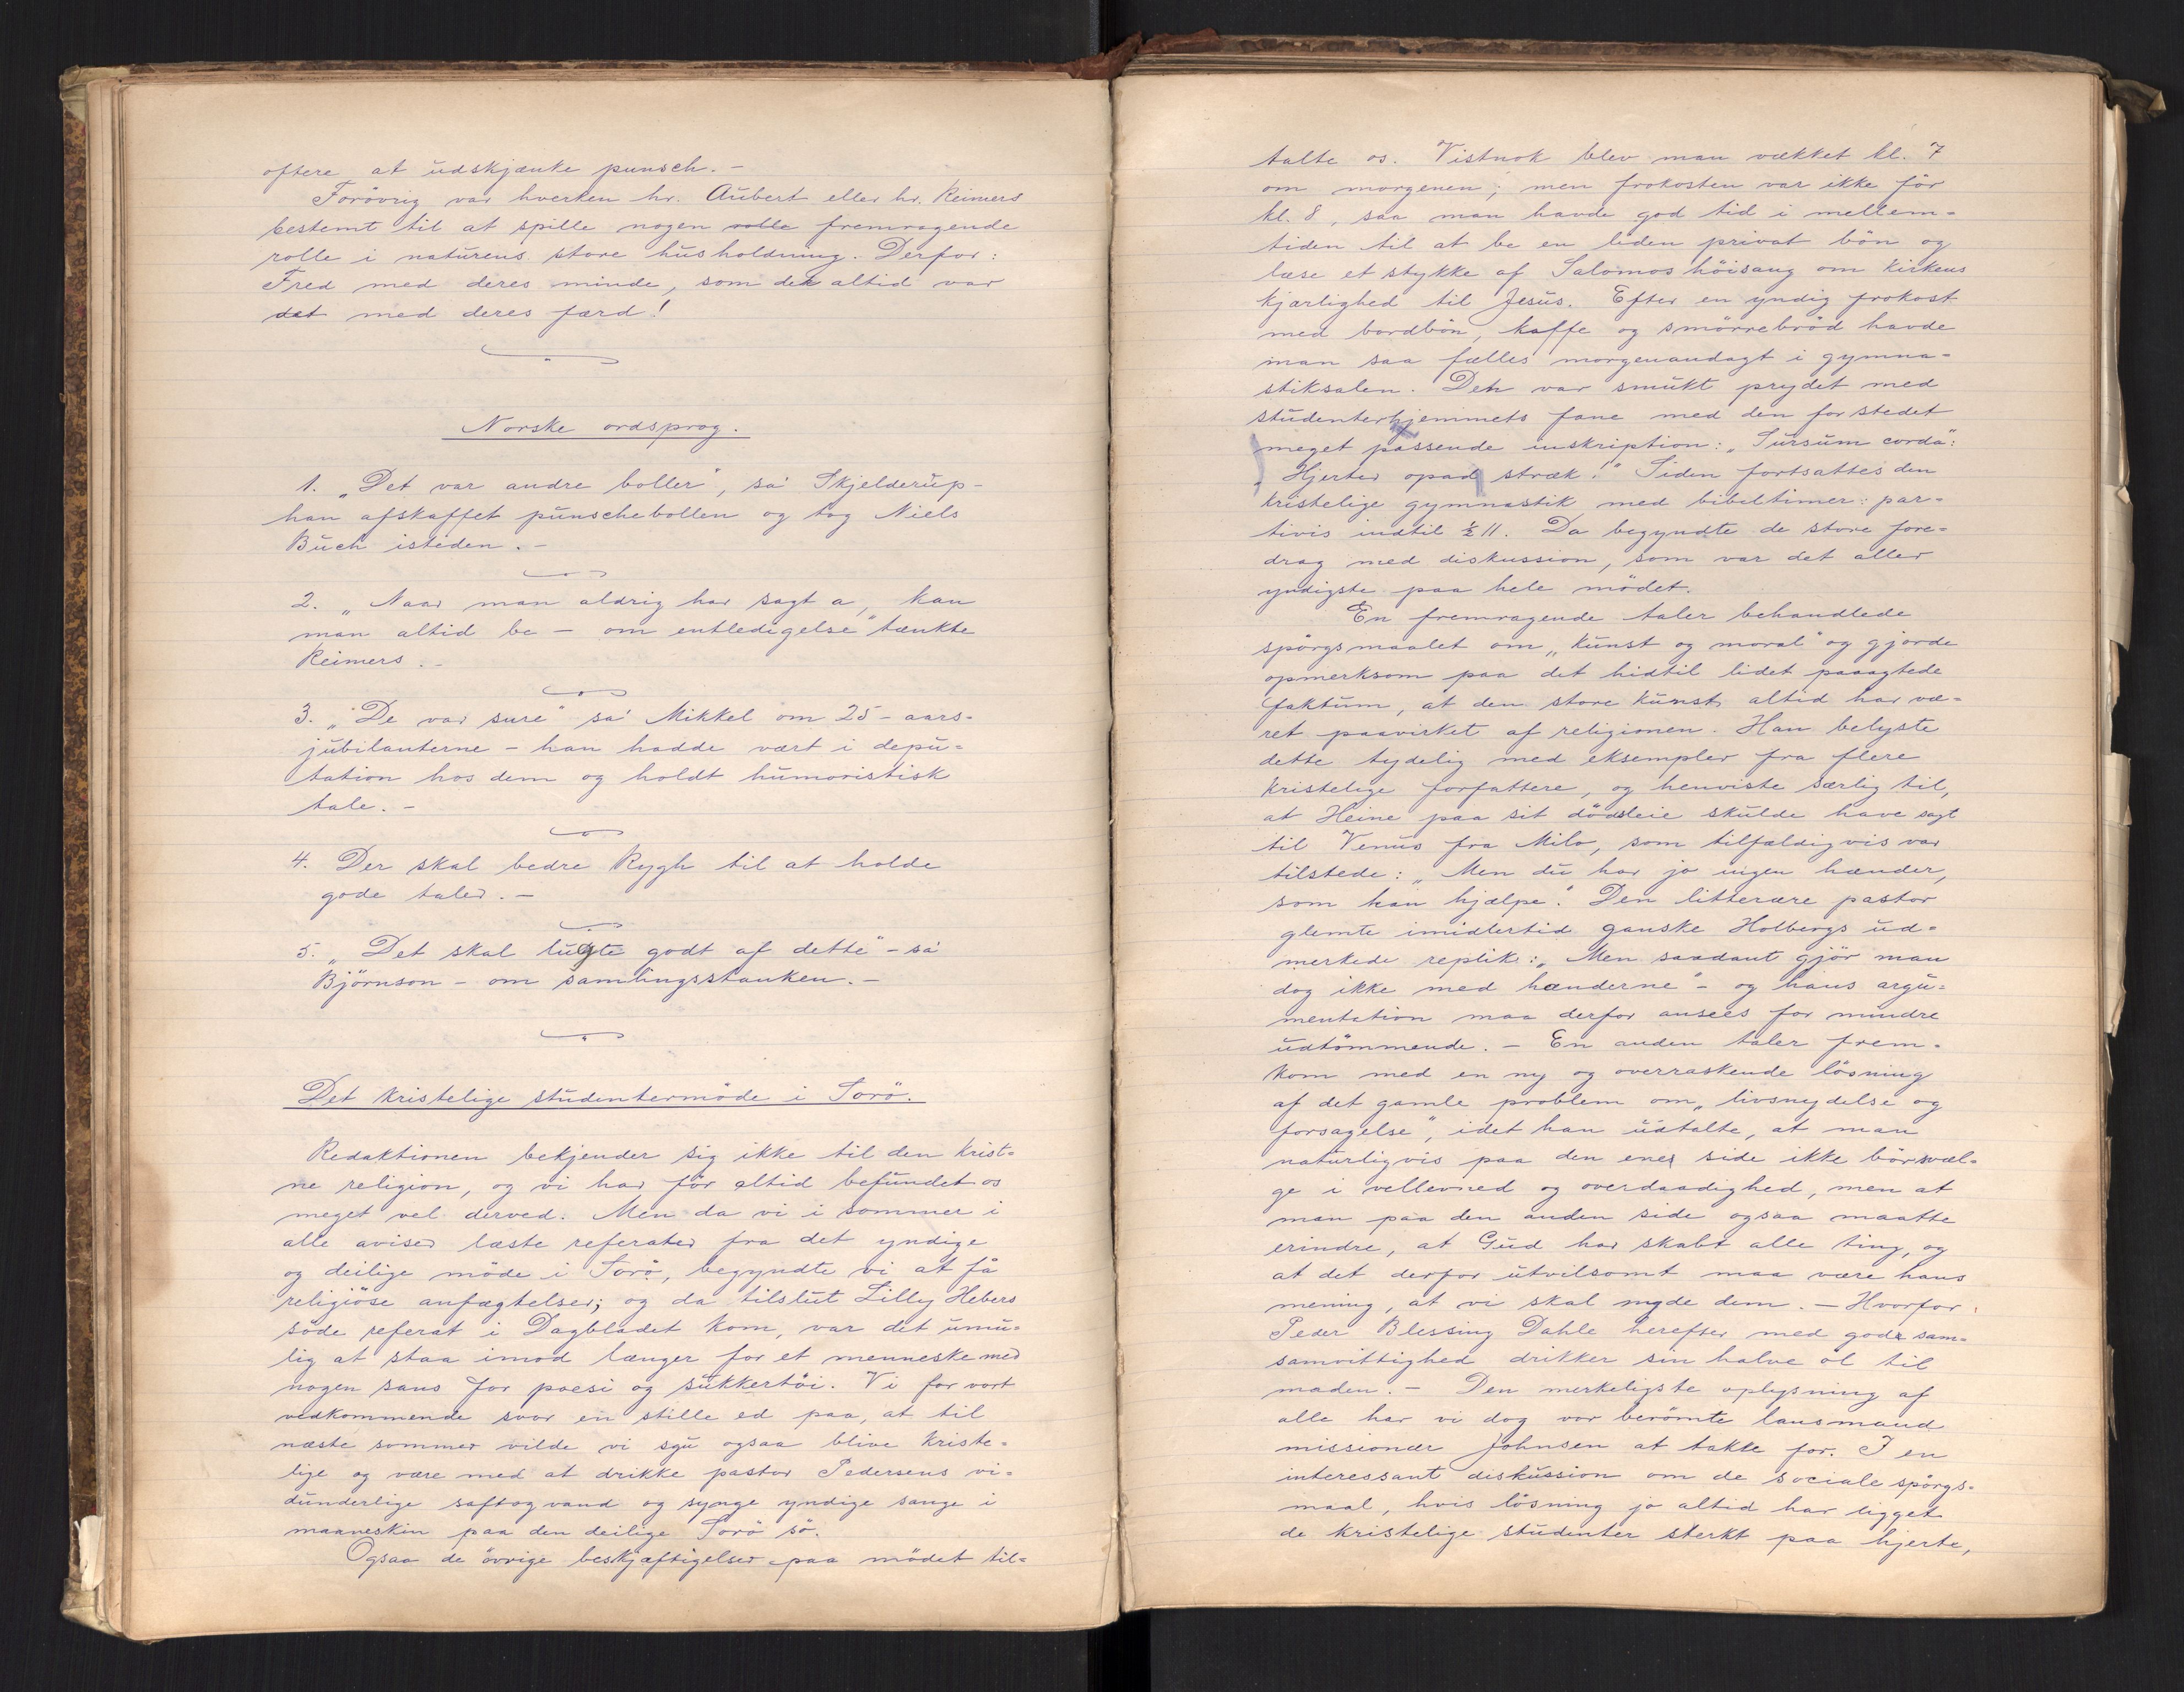 oftere at udskjænke punsch. –
Forövrig var hverken hr. Aubert eller hr. Reimers
bestemt til at spille nogen rolle fremragende
rolle i naturens store husholdning. Derfor:
Fred med deres minde, som der altid var
det med deres færd!
Norske ordsprog.
1. „Det var andre boller", sa' Skjelderup –
han afskaffet punschebollen og tog Niels
Buch isteden. –
2. „Naar man aldrig har sagt a, kan
man altid be – om entledigelse" tænkte
Reimers. –
3. „De var sure" sa' Mikkel om 25-aars-
jubilanterne – han hadde vært i depu=
tation hos dem og holdt humoristisk
tale. –
4. Der skal bedre Rygh til at holde
gode taler. –
5. „Det skal lugte godt af dette" – sa'
Björnson – om samlingsstanken. –
Det kristelige studentermöde i Sorö.
Redaktionen bekjender sig ikke til den krist=
ne religion, og vi har för altid befundet os
meget vel derved. Men da vi i sommer i
alle aviser læste referater fra det yndige
og deilige möde i Sorö, begyndte vi at få
religiöse anfægtelser; og da tilslut Lilly Hebers
söde referat i Dagbladet kom, var det umu=
lig at staa imod længer for et menneske med
nogen sans for poesi og sukkertöi. Vi for vort
vedkommende svor en stille ed paa, at til
næste sommer vilde vi sgu ogsaa blive kriste=
lige og være med at drikke pastor Pedersens vi=
dunderlige saftogvand og synge yndige sange i
maaneskin paa den deilige Sorö sö.
Ogsaa de övrige beskjæftigelser paa mödet til=
talte os. Vistnok blev man vækket kl. 7
om morgenen; men frokosten var ikke för
kl. 8, saa man havde god tid i mellem=
tiden til at be en liden privat bön og
læse et stykke af Salomos höisang om kirkens
kjærlighed til Jesus. Efter en yndig frokost
med bordbön, kaffe og smörrebröd havde
man saa fælles morgenandagt i gymna=
stiksalen. Den var smukt prydet med
studenterhjemmets fane med den for stedet
meget passende inskription: „Sursum corda":
– Hjerter opad stræk!" Siden fortsattes den
kristelige gymnastik med bibeltimer: par=
tivis indtil ½ 11. Da begyndte de store fore=
drag med diskussion, som var det aller
yndigste paa hele mödet.
En fremragende taler behandlede
spörgsmaalet om „kunst og moral" og gjorde
opmerksom paa det hidtil lidet paaagtede
faktum, at den store kunst altid har væ=
ret paavirket af religionen. Han belyste
dette tydelig med eksempler fra flere
kristelige forfattere, og henviste særlig til,
at Heine paa sit dödsleie skulde have sagt
til Venus fra Milo, som tilfældigvis var
tilstede: „Men du har jo ingen hænder,
som kan hjælpe". Den litterære pastor
glemte imidlertid ganske Holbergs ud=
merkede replik: „Men saadant gjör man
dog ikke med hænderne" – og hans argu=
mentation maa derfor ansees for mindre
udtömmende. – En anden taler frem=
kom med en ny og overraskende lösning
af det gamle problem om „livsnydelse og
forsagelse", idet han udtalte, at man
naturligvis paa den ene side ikke bör svæl=
ge i vellevned og overdaadighed, men at
man paa den anden side ogsaa maatte
erindre, at Gud har skabt alle ting, og
at det derfor utvilsomt maa være hans
mening, at vi skal nyde dem. – Hvorfor
Peder Blessing Dahle herefter med god sam=
samvittighed drikker sin halve öl til
maden. – Den merkeligste oplysning af
alle har vi dog vor berömte lansmand
missionær Johnsen at takke for. I en
interessant diskussion om de sociale spörgs=
maal, hvis lösning jo altid har ligget
de kristelige studenter sterkt paa hjerte,